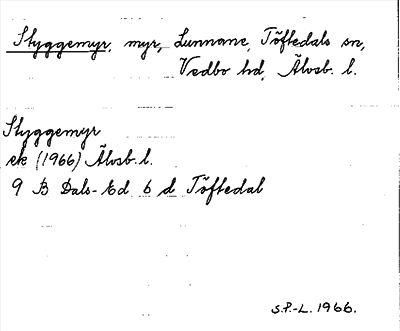 Styggemyr, myr, Lunnane, Töftedals sn,
Vedbo hd, Älvsb. l.
Styggemyr
ek (1966) Älvsb. l.
9 B Dals-Ed 6 d Töftedal
S.P.-L. 1966.